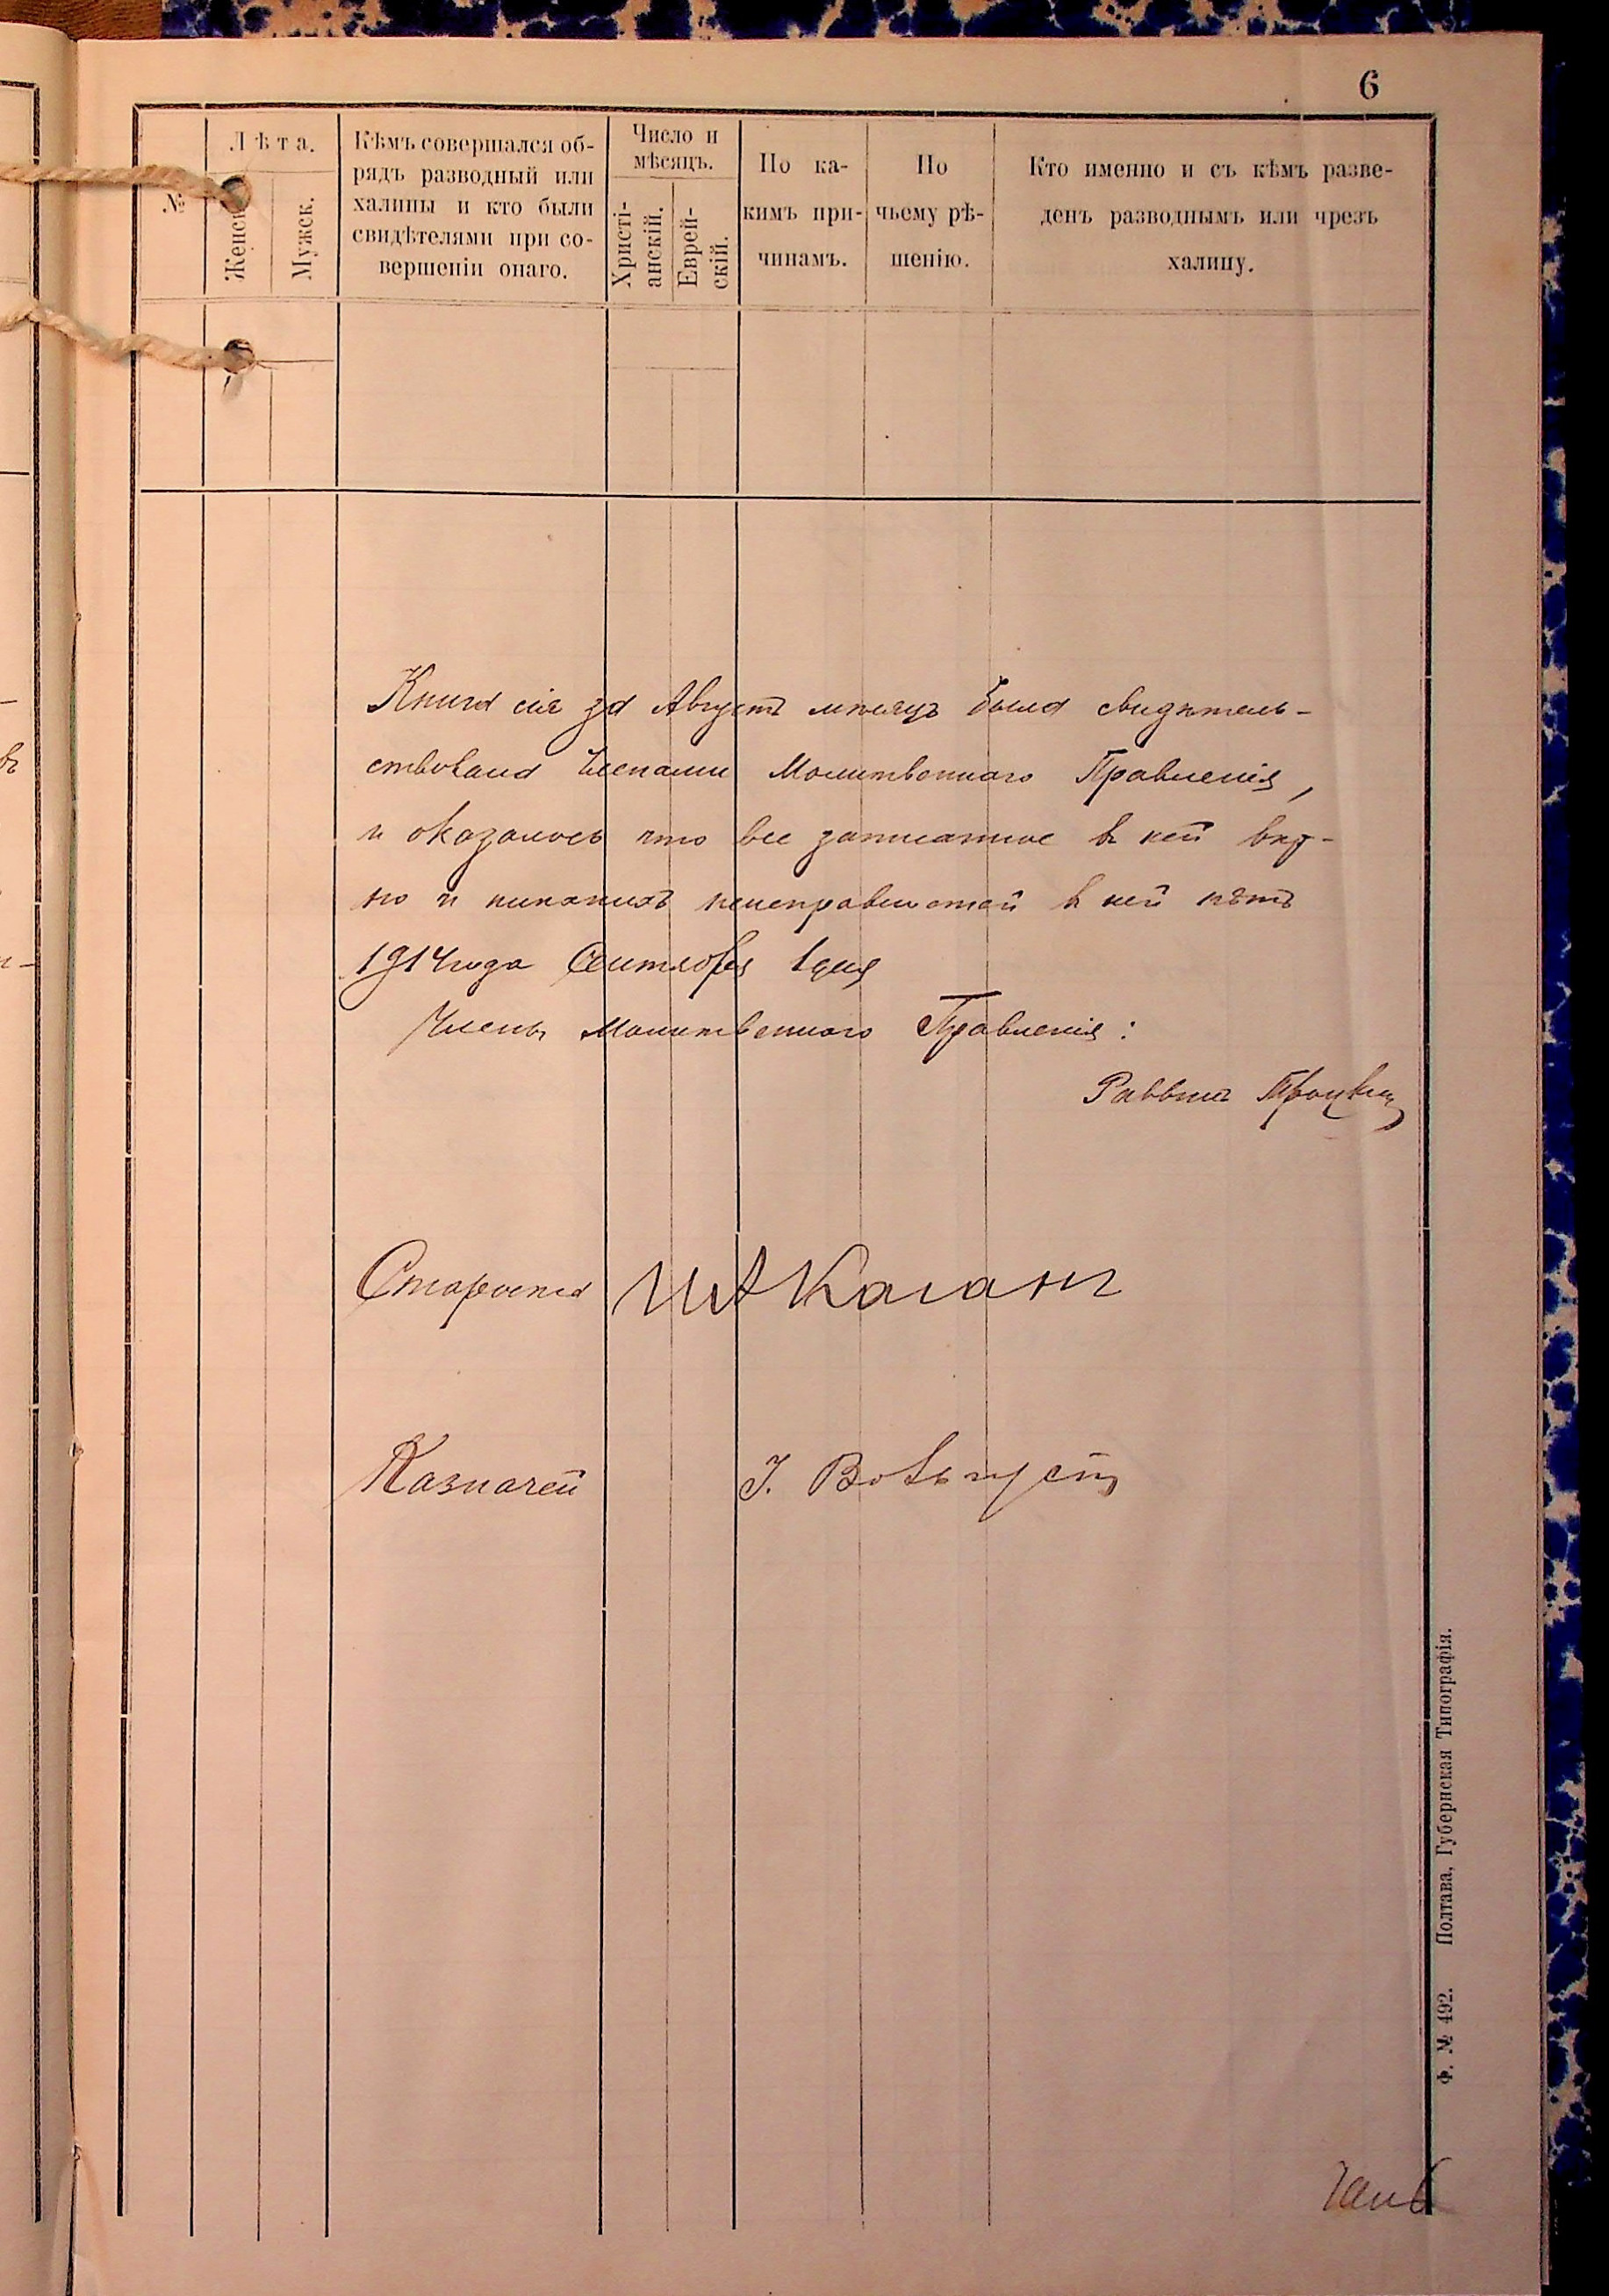 6
№
Лѣта.
Женск
Мужск.
Кѣмъ совершался об-
рядъ разводный или
халицы и кто были
свидѣтелями при со-
вершеніи онаго.
Число и
мѣсяцъ.
Христі-
анскій.
Еврей-
скій.
По ка-
кимъ при-
чинамъ.
По
чьему рѣ-
шенію.
Кто именно и съ кѣмъ разве-
денъ разводнымъ или чрезъ
халицу.
Книга сія за Августъ мѣсяцъ была свидѣтель-
ствована Членами Молитвеннаго Правленія,
и оказалось что все записанное въ ней вѣр-
но и никакихъ неисправностей въ ней нѣтъ
1914 года Сентября 1 дня
Члены Молитвеннаго Правленія:
Раввинъ
Староста Каганъ
Казначей І.
Ф. № 492. Полтава, Губернская Типографія.